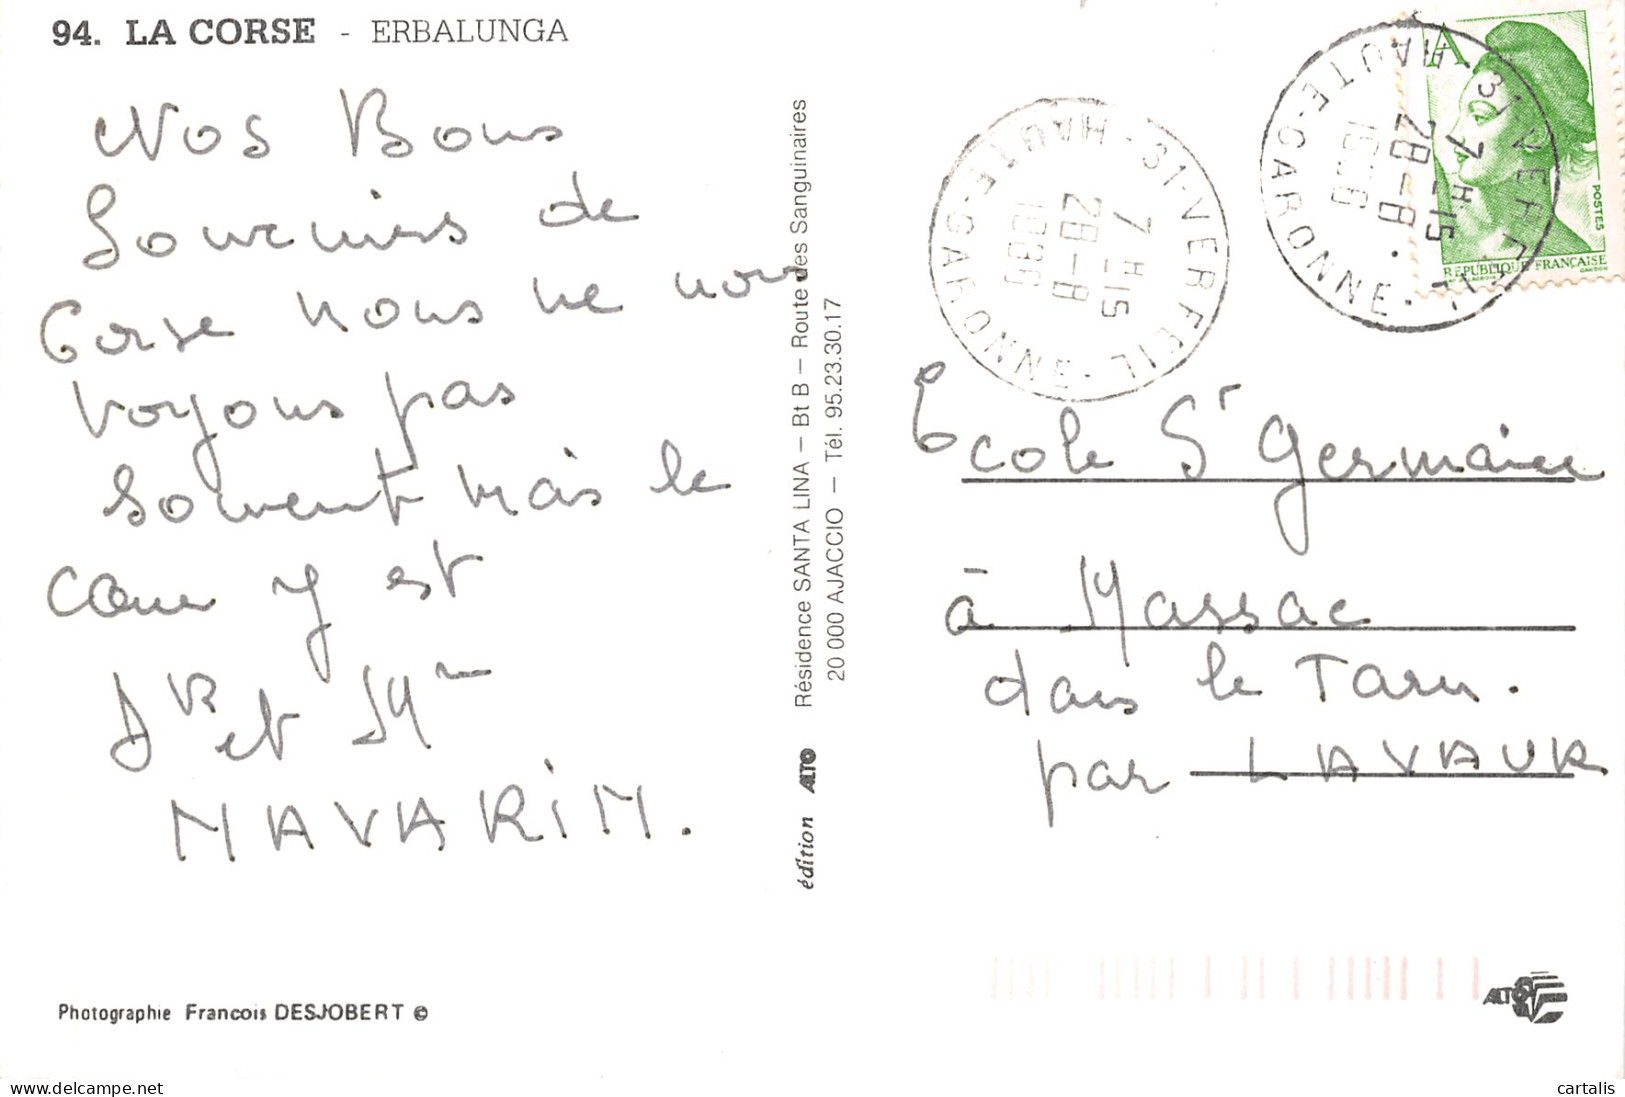 94. LA CORSE - ERBALUNGA
Nos Bons
Souvenirs de
Corse nous ne nous
voyons pas
souvent mais le
cœur y est
Dr et Mme
NAVARIN.
Photographie Francois DESJOBERT ©
édition ALTO Résidence SANTA LINA — Bt B — Route des Sanguinaires
20 000 AJACCIO — Tél. 95.23.30.17
31-VERFEIL
7 H 15
28-8
HAUTE-GARONNE
A
31-VERFEIL
7 H 15
28-8
HAUTE-GARONNE
POSTES
REPUBLIQUE FRANÇAISE
Ecole St Germaine
à Massac
dans le Tarn.
par LAVAUR
ALTO
delcampe.net
cartalis